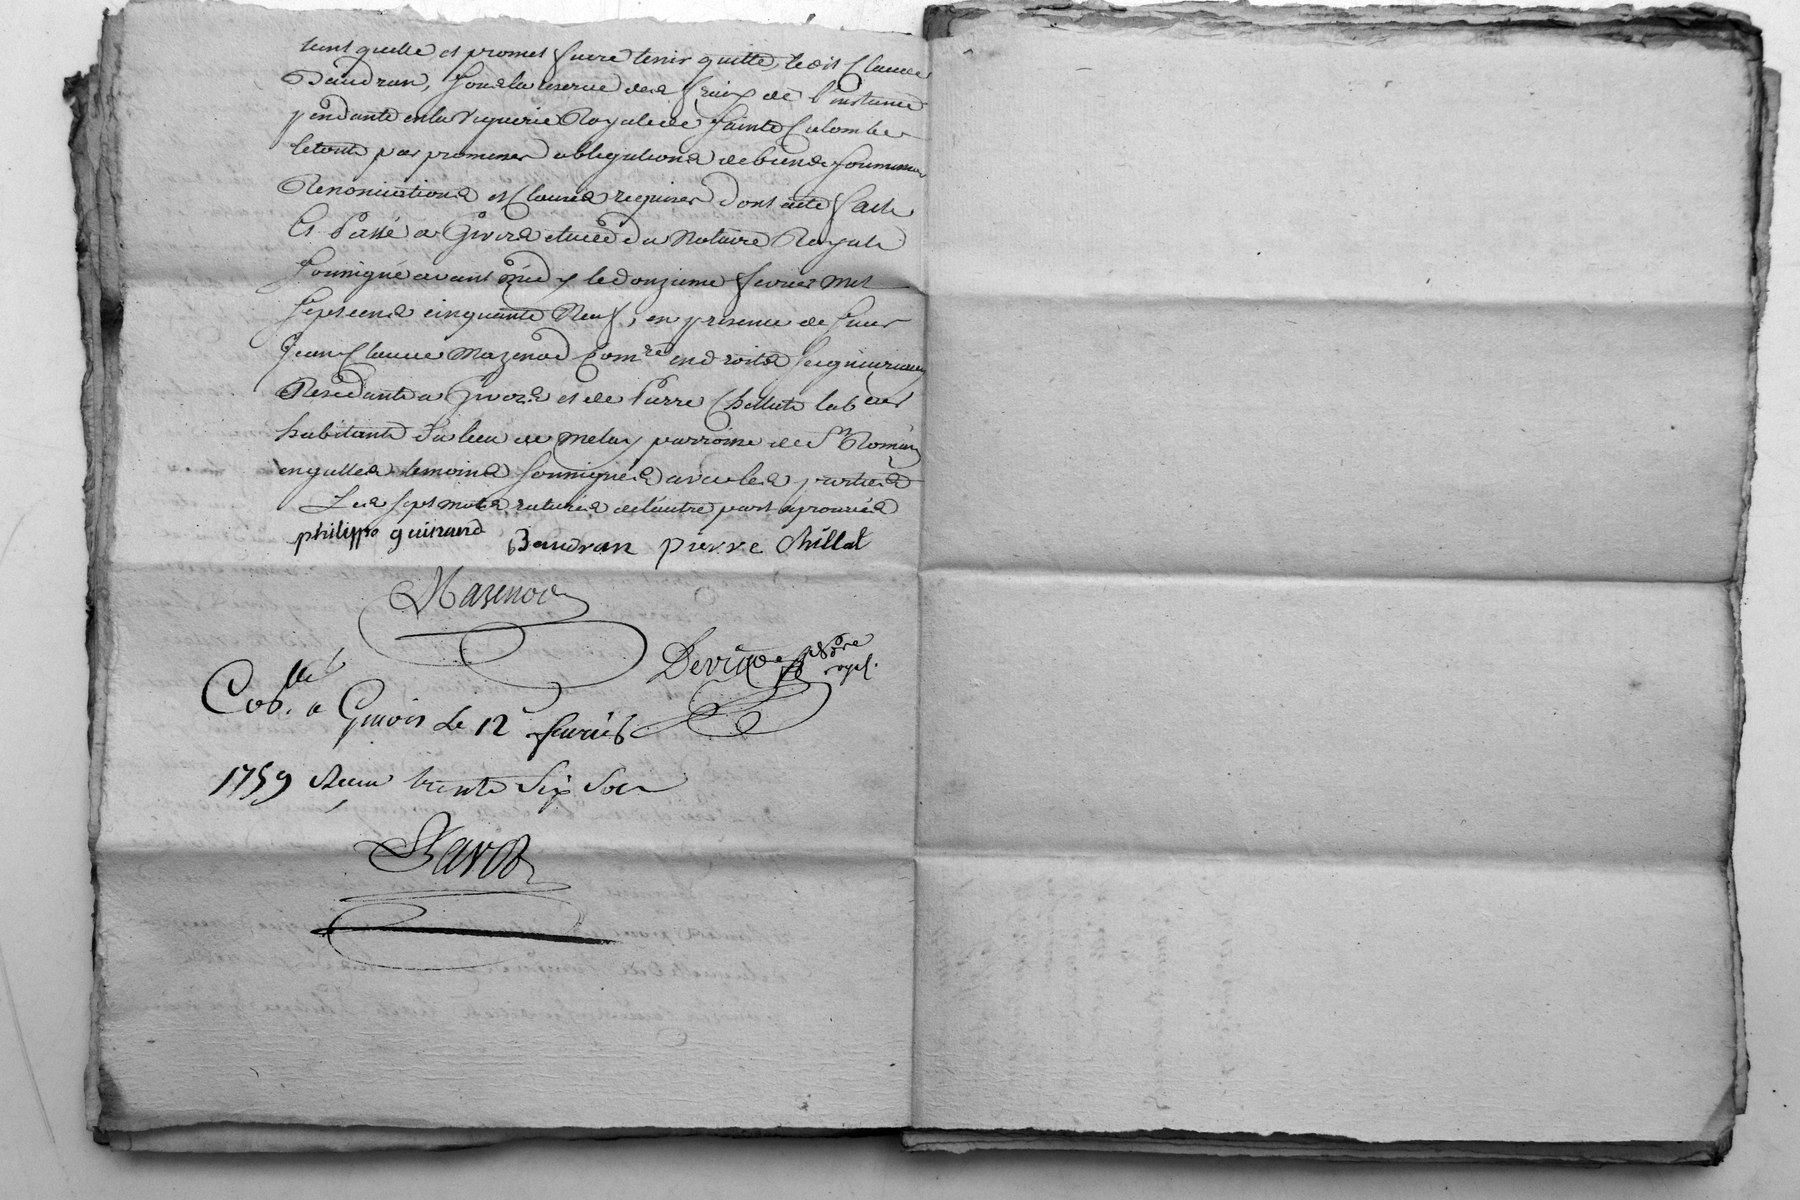 tient quitte et promet faire tenir quitte, ledit Claude
Baudran, sous la reserve des fraix de l'instance
pendante en la Viguerie Royale de Sainte Colombe
letout par promesses obligations de biens soumissions
Renonciations et Clauses requises dont acte fait
Et Passé a Givors etude du Notaire Royal
soussigné avant midy le douzieme fevrier mil
sept cens cinquante Neuf, en presence de sieur
Jean Claude Mazenod Com.re en droits seigneuriaux
Residant a Givors et de Pierre Chillat lab
habitant du lieu de Melay parroisse de St Romain
engalles temoins soussignés avec les parties
Les sept mots raturés de l'autre part aprouvés
philippe guinand Baudran pierre Chillat
Mazenod
no.re
royal.
a Givors le 12 fevrier
1759 Recu trente six sols